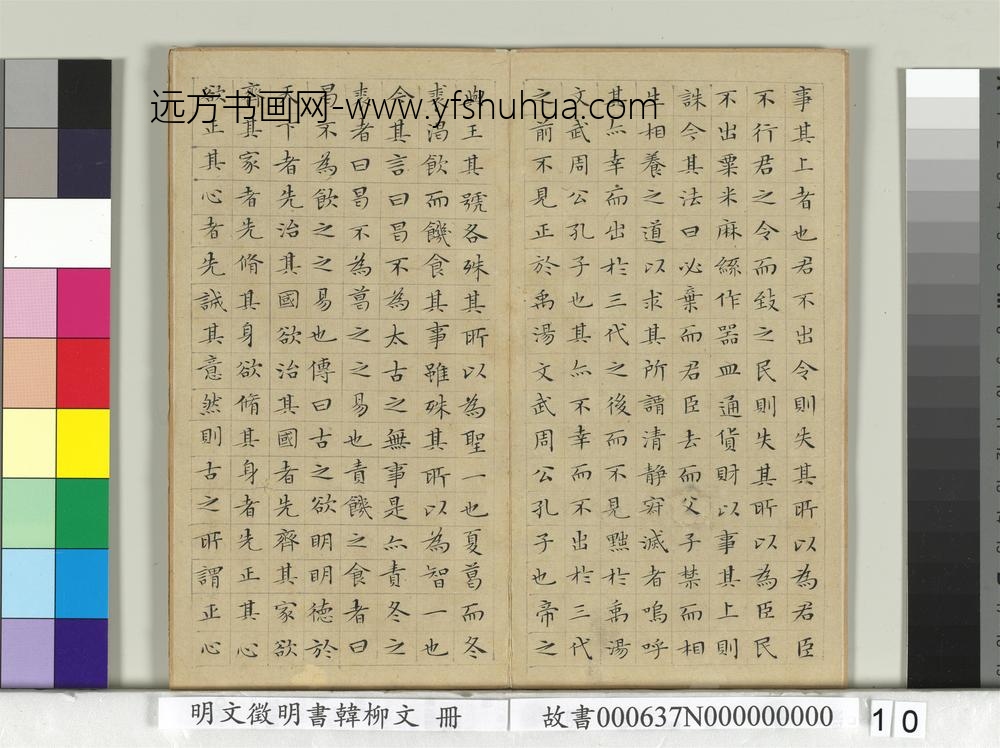 远方书画网-www.yfshuhua.com
事其上者也君不出令則失其所以為君臣
不行君之令而致之民則失其所以為臣民
不出粟米麻絲作器皿通貨財以事其上則
誅今其法曰必棄而君臣去而父子禁而相
生相養之道以求其所謂清靜寂滅者嗚呼
其亦幸而出於三代之後而不見黜於禹湯
文武周公孔子也其亦不幸而不出於三代
之前不見正於禹湯文武周公孔子也帝之
與王其號各殊其所以為聖一也夏葛而冬
裘渴飲而饑食其事雖殊其所以為智一也
今其言曰曷不為太古之無事是亦責冬之
裘者曰曷不為葛之之易也責饑之食者曰
曷不為飲之之易也傳曰古之欲明明德於
天下者先治其國欲治其國者先齊其家欲
齊其家者先脩其身欲脩其身者先正其心
欲正其心者先誠其意然則古之所謂正心
明文徵明書韓柳文 冊
故書000637N000000000
10